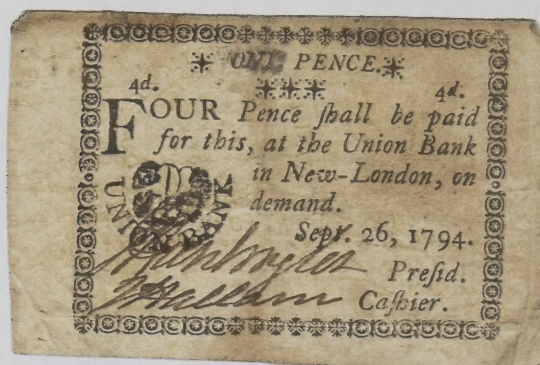 PENCE.
4d. 4d.
FOUR Pence ſhall be paid
for this, at the Union Bank
in New-London, on
demand.
UNION BANK
Sept. 26, 1794.
Preſid.
Hallam Caſhier.